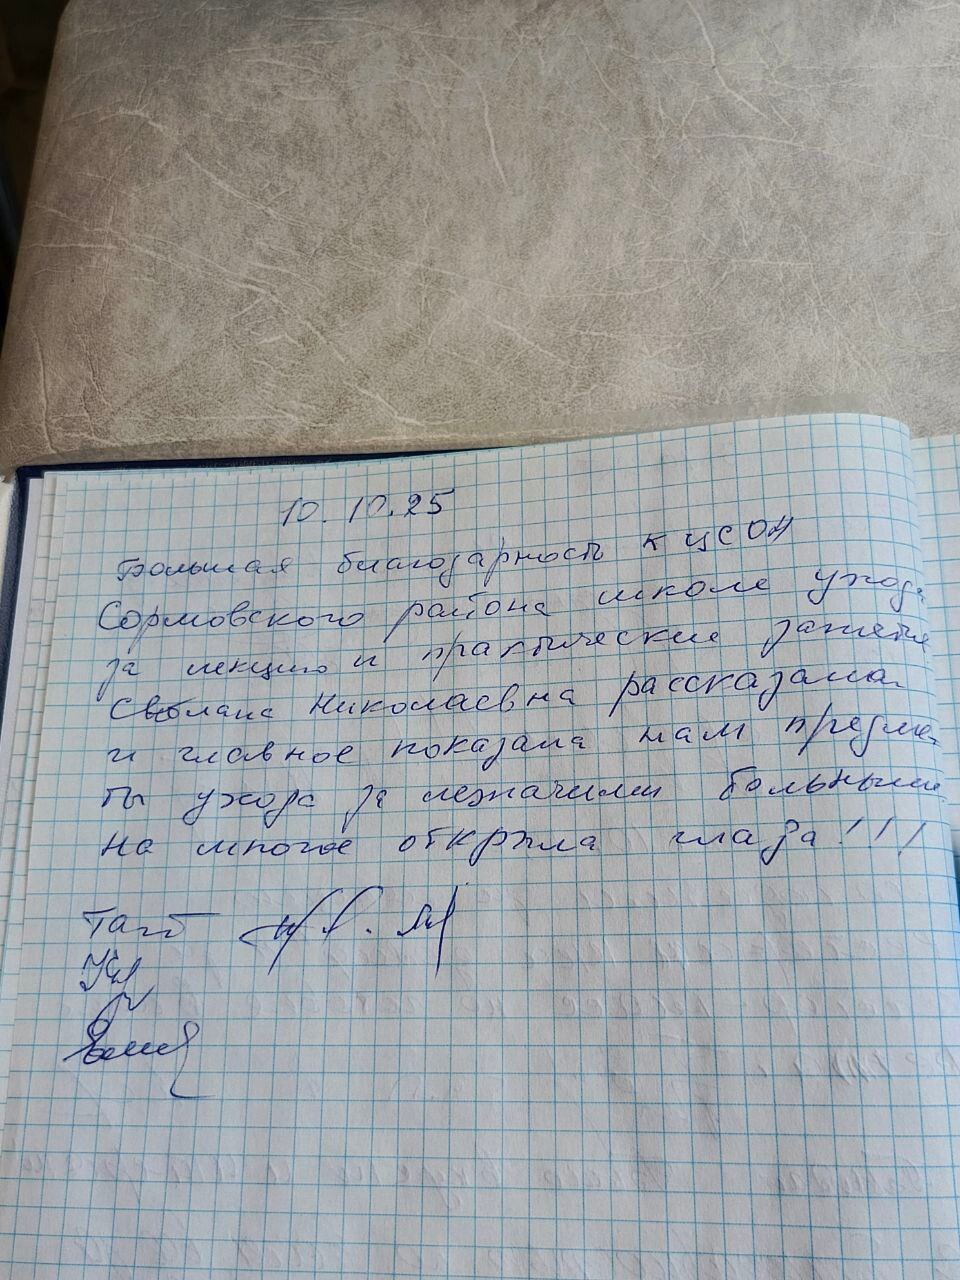 10.10.25
Большая благодарность КЦСОН
Сормовского района школе ухода
за лекцию и практические занятия
Светлана Николаевна рассказала
и главное показала нам предме-
ты ухода за лежачими больными.
На многое открыла глаза!!!